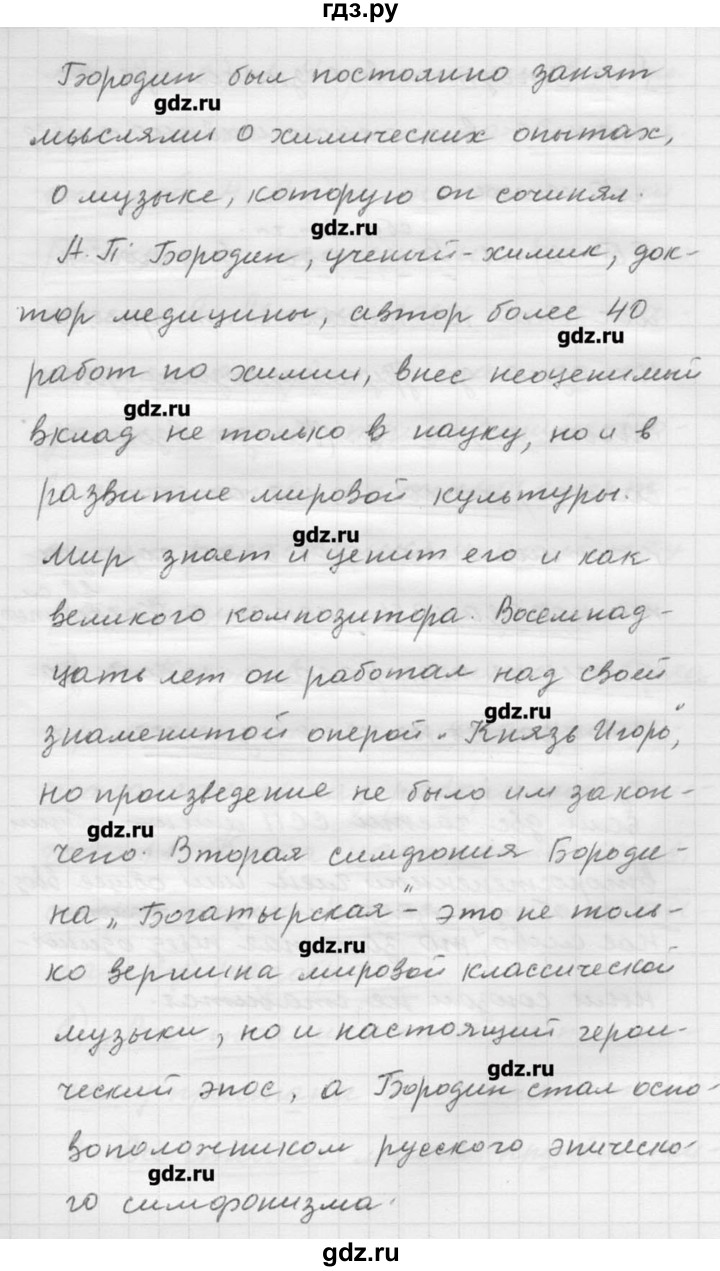 гдз.ру
Бородин был постоянно занят
gdz.ru
мыслями о химических опытах,
о музыке, которую он сочинял.
gdz.ru
А. П. Бородин, ученый-химик, док-
тор медицины, автор более 40
gdz.ru
работ по химии, внес неоценимый
gdz.ru
вклад не только в науку, но и в
развитие мировой культуры.
gdz.ru
Мир знает и ценит его и как
великого композитора. Восемнад-
цать лет он работал над своей
gdz.ru
знаменитой оперой „Князь Игорь",
но произведение не было им закон-
gdz.ru
чено. Вторая симфония Бороди-
на „Богатырская" - это не толь-
gdz.ru
ко вершина мировой классической
музыки, но и настоящий герои-
gdz.ru
ческий эпос, а Бородин стал осно-
воположником русского эпическо-
gdz.ru
го симфонизма.
gdz.ru